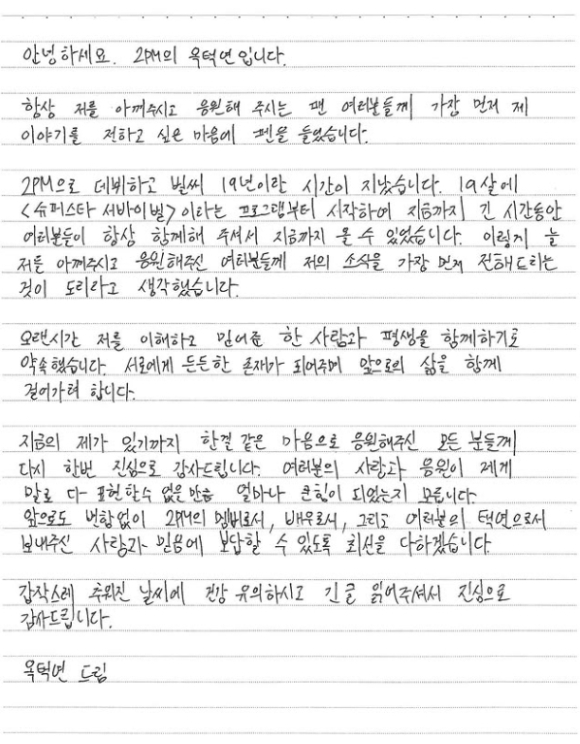 안녕하세요. 2PM의 옥택연입니다.
항상 저를 아껴주시고 응원해 주시는 팬 여러분들께 가장 먼저 제
이야기를 전하고 싶은 마음에 펜을 들었습니다.
2PM으로 데뷔하고 벌써 19년이란 시간이 지났습니다. 19살에
<슈퍼스타 서바이벌> 이라는 프로그램부터 시작하여 지금까지 긴 시간동안
여러분들이 항상 함께해 주셔서 지금까지 올 수 있었습니다. 이렇게 늘
저를 아껴주시고 응원해주신 여러분들께 저의 소식을 가장 먼저 전해드리는
것이 도리라고 생각했습니다.
오랜시간 저를 이해하고 믿어준 한 사람과 평생을 함께하기로
약속했습니다. 서로에게 든든한 존재가 되어주며 앞으로의 삶을 함께
걸어가려 합니다.
지금의 제가 있기까지 한결 같은 마음으로 응원해주신 모든 분들께
다시 한번 진심으로 감사드립니다. 여러분의 사랑과 응원이 제게
말로 다 표현할수 없을만큼 얼마나 큰힘이 되었는지 모릅니다.
앞으로도 변함없이 2PM의 멤버로서, 배우로서, 그리고 여러분의 택연으로서
보내주신 사랑과 믿음에 보답할 수 있도록 최선을 다하겠습니다.
갑작스레 추워진 날씨에 건강 유의하시고 긴글 읽어주셔서 진심으로
감사드립니다.
옥택연 드림